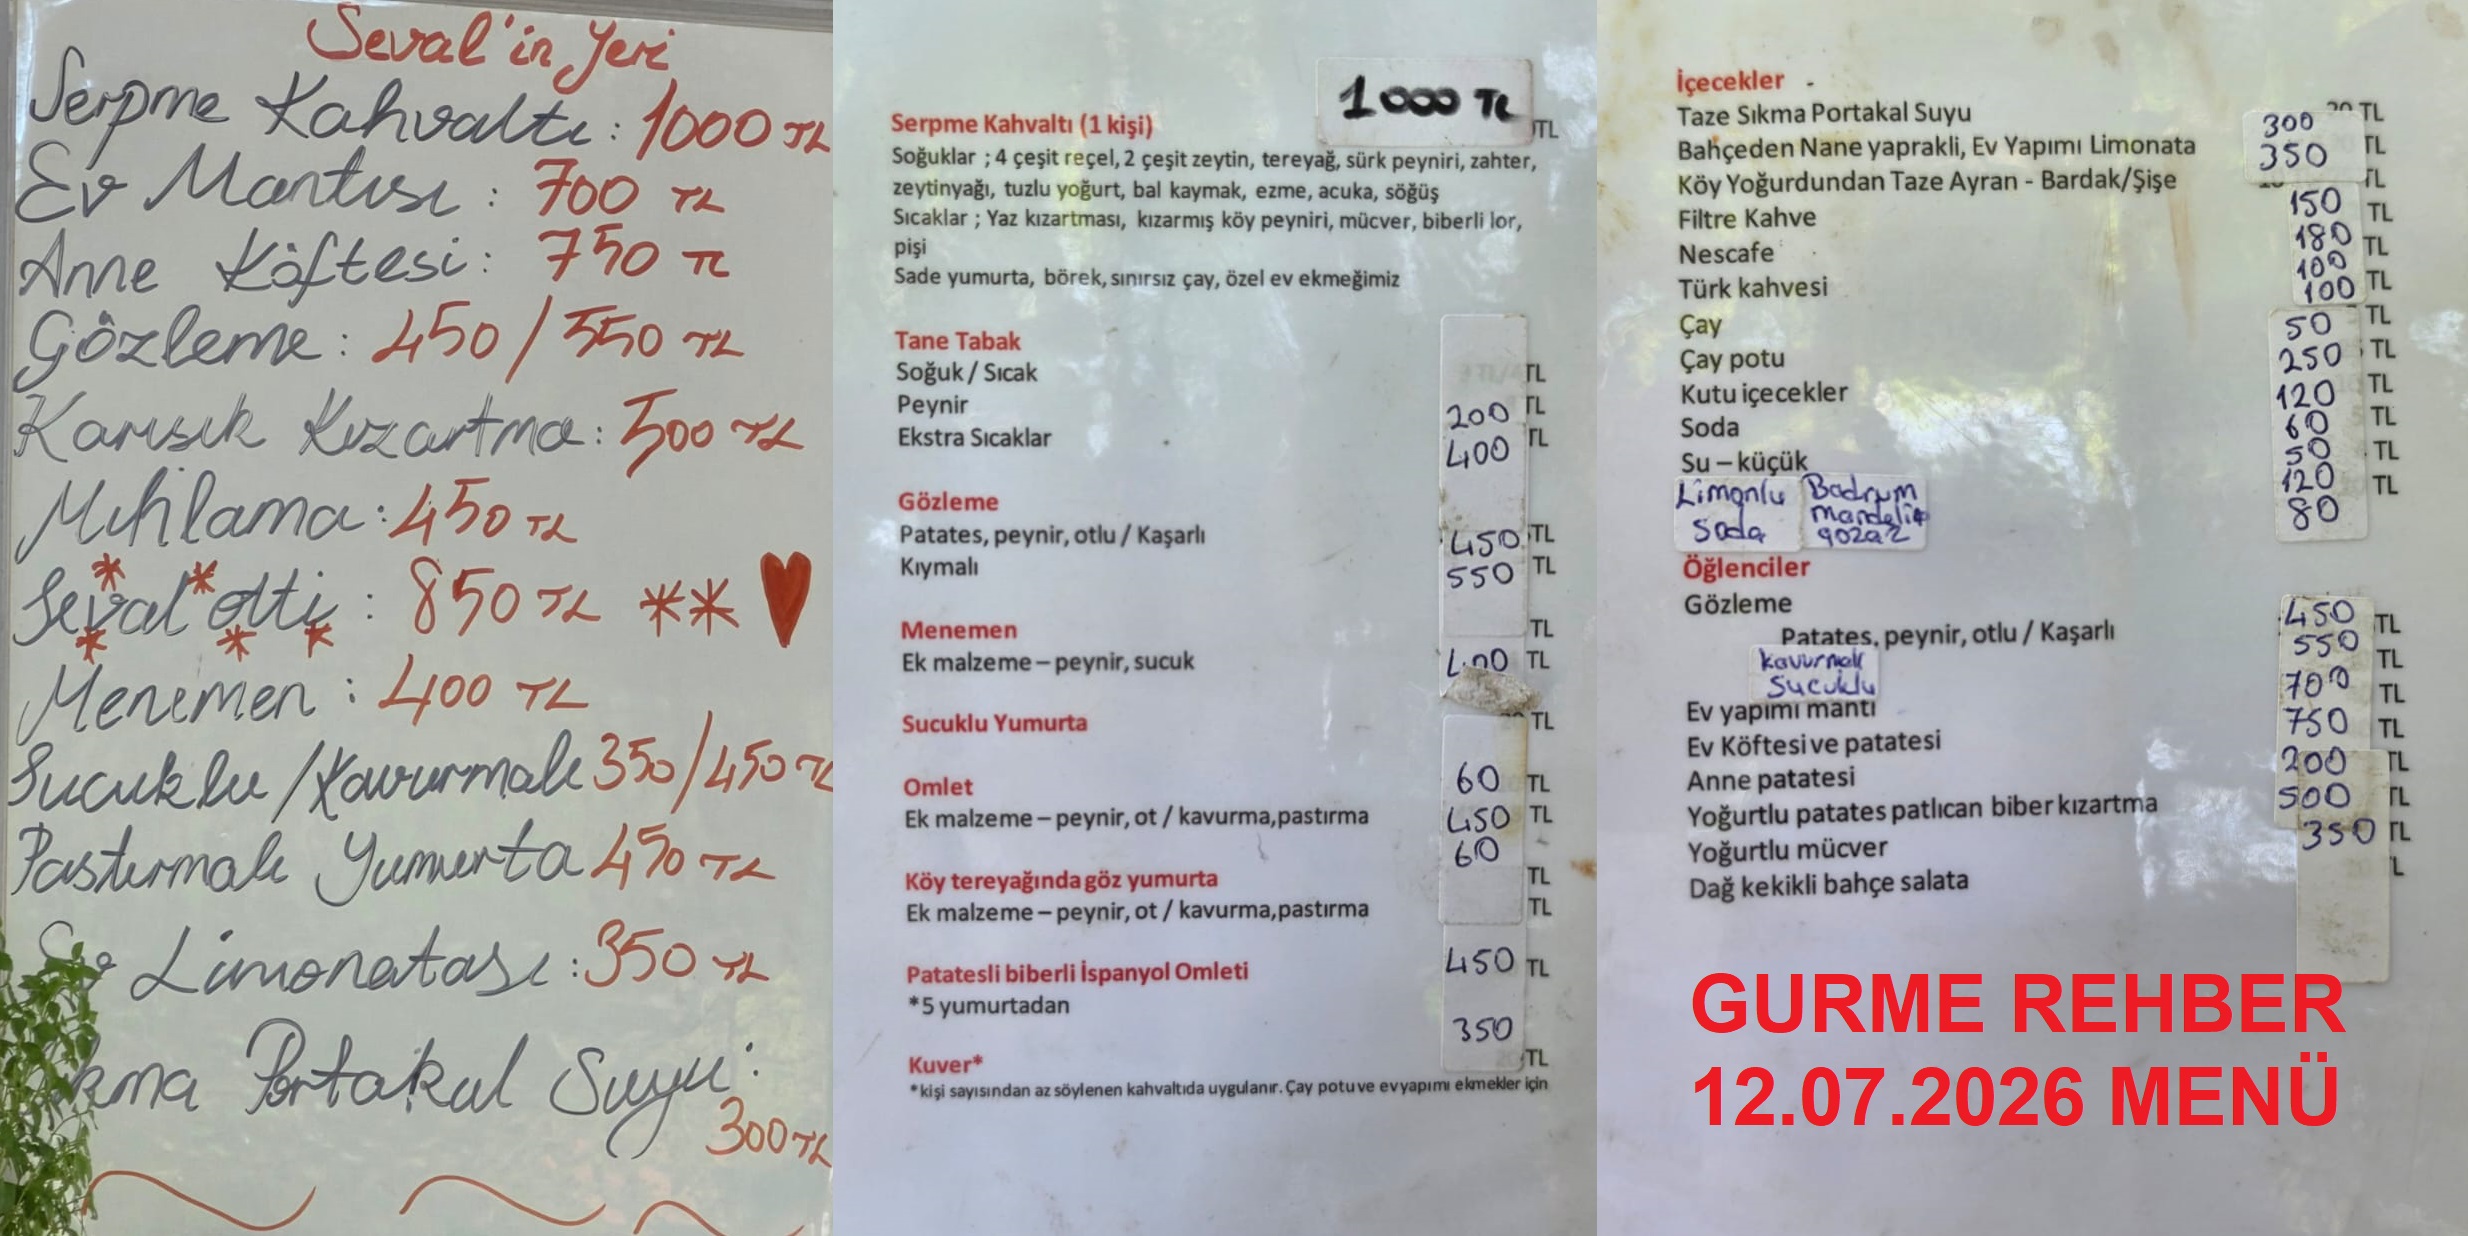 Seval'in Yeri
Serpme Kahvaltı: 1000 TL
Ev Mantısı: 700 TL
Anne Köftesi: 750 TL
Gözleme: 450/550 TL
Karışık Kızartma: 500 TL
Mıhlama: 450 TL
Seval otti: 850 TL
Menemen: 400 TL
Sucuklu/Kavurmalı 350/450 TL
Pastırmalı Yumurta 450 TL
Ev Limonatası: 350 TL
kma Portakal Suyu:
300 TL
1000 TL
Serpme Kahvaltı (1 kişi) TL
Soğuklar ; 4 çeşit reçel, 2 çeşit zeytin, tereyağ, sürk peyniri, zahter,
zeytinyağı, tuzlu yoğurt, bal kaymak, ezme, acuka, söğüş
Sıcaklar ; Yaz kızartması, kızarmış köy peyniri, mücver, biberli lor,
pişi
Sade yumurta, börek, sınırsız çay, özel ev ekmeğimiz
Tane Tabak
Soğuk / Sıcak TL
Peynir 200 TL
Ekstra Sıcaklar 400 TL
Gözleme
Patates, peynir, otlu / Kaşarlı 450 TL
Kıymalı 550 TL
Menemen TL
Ek malzeme – peynir, sucuk 400 TL
Sucuklu Yumurta TL
Omlet 60 TL
Ek malzeme – peynir, ot / kavurma,pastırma 450 TL
60
Köy tereyağında göz yumurta TL
Ek malzeme – peynir, ot / kavurma,pastırma TL
Patatesli biberli İspanyol Omleti 450 TL
*5 yumurtadan
350
Kuver* TL
*kişi sayısından az söylenen kahvaltıda uygulanır. Çay potu ve ev yapımı ekmekler için
İçecekler
Taze Sıkma Portakal Suyu 300 TL
Bahçeden Nane yaprakli, Ev Yapımı Limonata 350 TL
Köy Yoğurdundan Taze Ayran - Bardak/Şişe TL
Filtre Kahve 150 TL
Nescafe 180 TL
100
Türk kahvesi 100 TL
Çay 50 TL
Çay potu 250 TL
Kutu içecekler 120 TL
Soda 60 TL
Su – küçük 50 TL
120 TL
Limonlu Soda
Bodrum mandalin gozoz
80
Öğlenciler
Gözleme
Patates, peynir, otlu / Kaşarlı 450 TL
Kavurmalı 550 TL
Sucuklu
Ev yapımı mantı 700 TL
Ev Köftesi ve patatesi 750 TL
Anne patatesi 200 TL
Yoğurtlu patates patlıcan biber kızartma 500 TL
Yoğurtlu mücver 350 TL
Dağ kekikli bahçe salata TL
GURME REHBER
12.07.2026 MENÜ